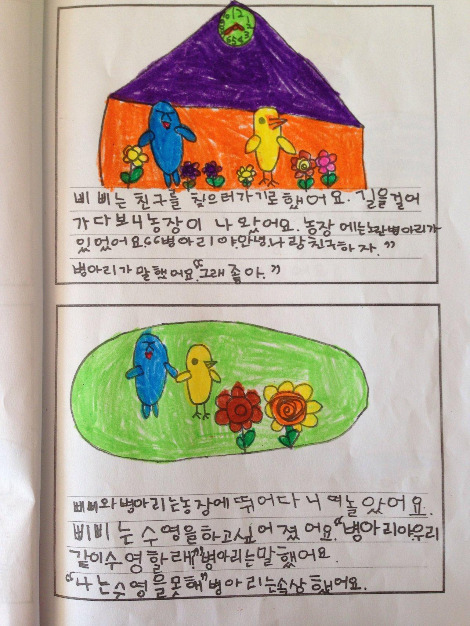 삐삐는 친구를 찾으러가기로했어요. 길을걸어
가다보니농장이 나왔어요. 농장에는노란병아리가
있었어요“병아리야안녕나랑친구하자.”
병아리가말했어요“그래좋아.”
삐삐와병아리는농장에뛰어다니며놀았어요.
삐삐는수영을하고싶어졌어요“병아리야우리
같이수영할래?”병아리는말했어요.
“나는수영을못해”병아리는속상했어요.